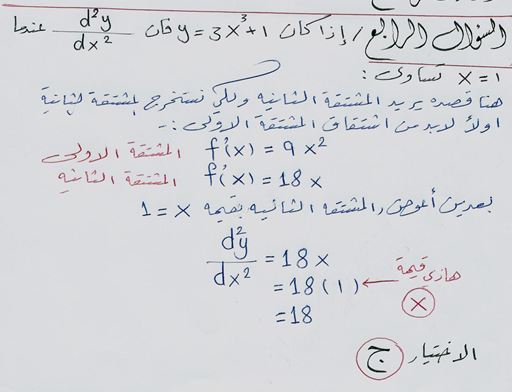 السؤال الرابع / إذا كان y = 3x³+1 فان d²y/dx² عندما
x = 1 تساوي :
هنا قصده يريد المشتقة الثانيه ولكي نستخرج المشتقة الثانية
اولاً لابد من اشتقاق المشتقة الاولى :-
f'(x) = 9x² المشتقة الاولى
f'(x) = 18x المشتقة الثانيه
بعدين أعوض المشتقه الثانيه بقيمه x = 1
d²y/dx² = 18x
= 18(1) ← هاذي قيمة
x
= 18
الاختيار ج